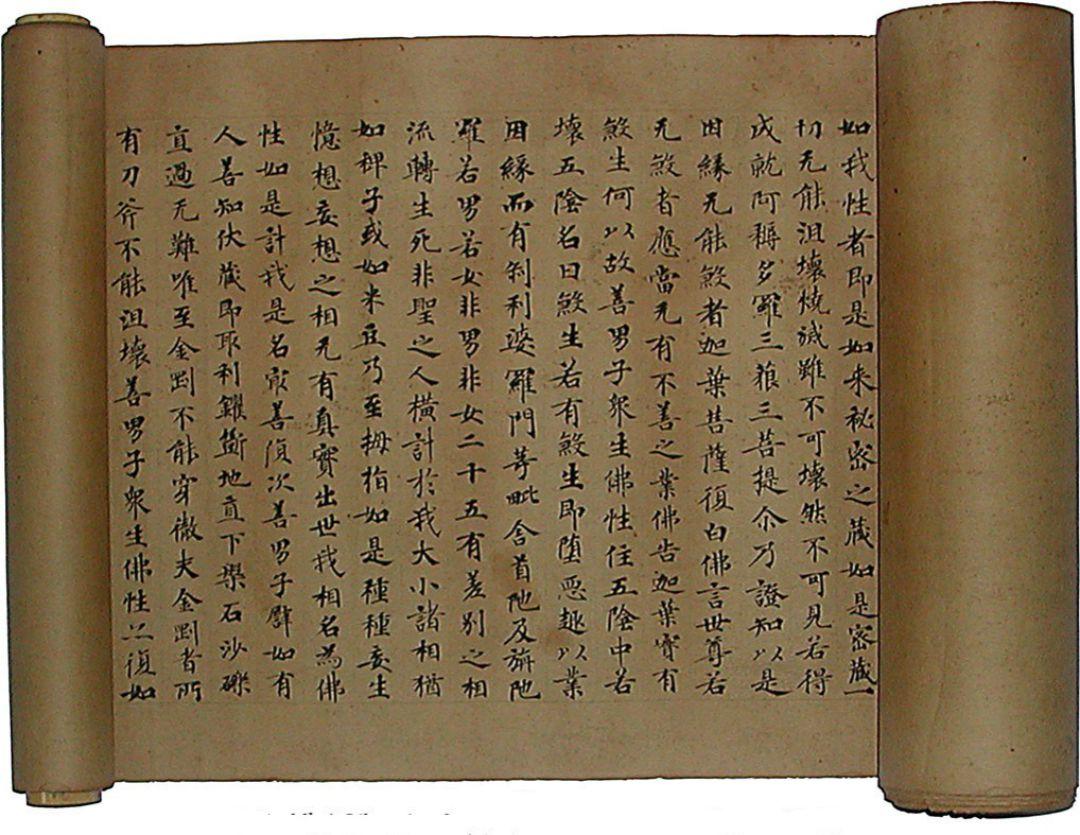 如我性者即是如来秘密之蔵如是密蔵一
切无能沮壞燒滅雖不可壞然不可見若得
成就阿耨多羅三藐三菩提尒乃證知以是
因緣无能煞者迦葉菩薩復白佛言世尊若
无煞者應當无有不善之業佛告迦葉實有
煞生何以故善男子衆生佛性住五陰中若
壞五陰名曰煞生若有煞生即墮惡趣以業
因緣而有刹利婆羅門等毗舍首陁及旃陁
羅若男若女非男非女二十五有差别之相
流轉生死非聖之人横計於我大小諸相猶
如稗子或如米豆乃至拇指如是種種妄生
憶想妄想之相无有真實出世我相名為佛
性如是計我是名最善復次善男子譬如有
人善知伏蔵即取利钁斸地直下槃石沙礫
直過无難唯至金剛不能穿徹夫金剛者所
有刀斧不能沮壞善男子衆生佛性亦復如